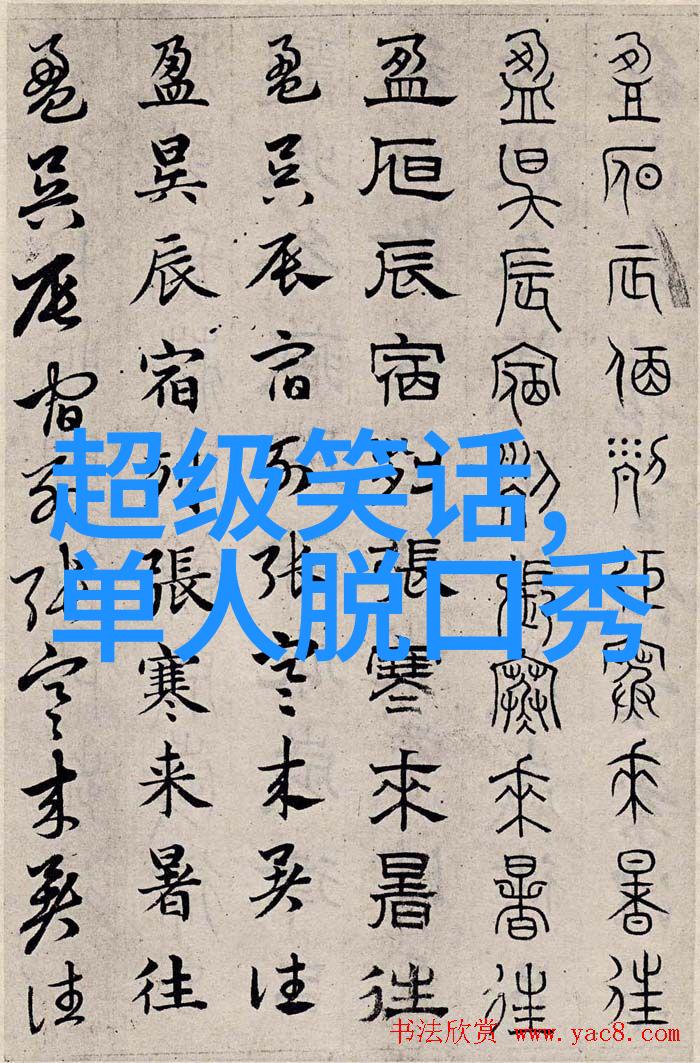 盈昃辰宿列張寒來暑往
盈昃辰宿列張寒來暑往
盈昃辰宿列張寒來暑往
盈昃辰宿列张寒来暑往
盈昃辰宿列張寒来暑往
盈昃辰宿列张寒来暑往
超级笑话,
单人脱口秀
书法欣赏 www.yac8.com